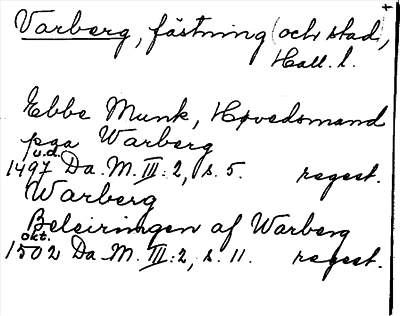 Varberg, fästning (och stad),
Hall. l.
Ebbe Munk, Høvedsmand
paa Warberg
u.d.
1497 Da. M. III: 2, s. 5. regest.
Warberg
Beleiringen af Warberg
okt.
1502 Da. M. III: 2, s. 11. regest.